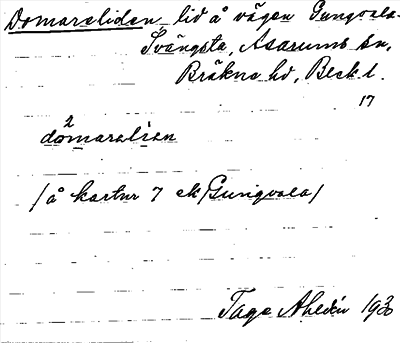 Domareliden lid å vägen Gungvala-
Svängsta, Asarums sn,
Bräkne hd, Blek. l.
17
2
dömarelien
/å kartur 7 ek Gungvala/
Tage Ahldén 1930